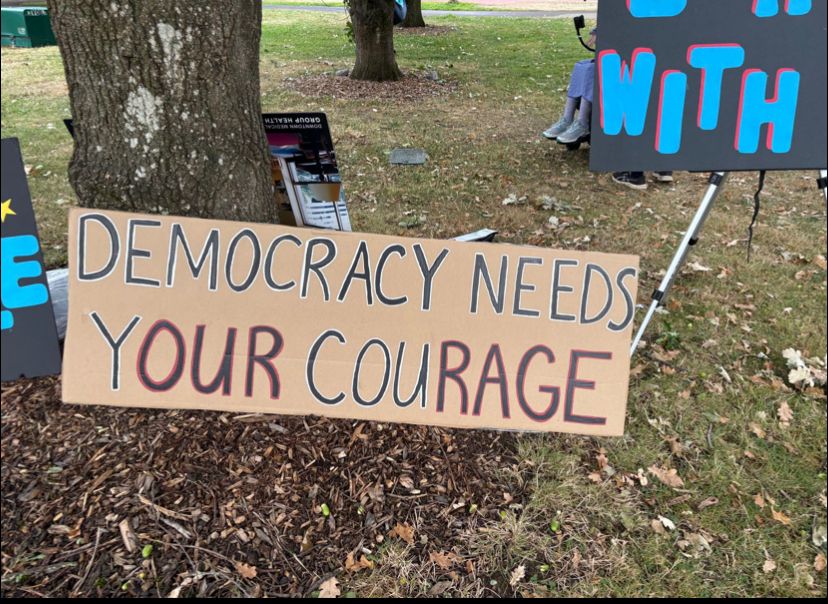 WITH
DOWNTOWN MEDICAL
GROUP HEALTH
DEMOCRACY NEEDS
YOUR COURAGE
E